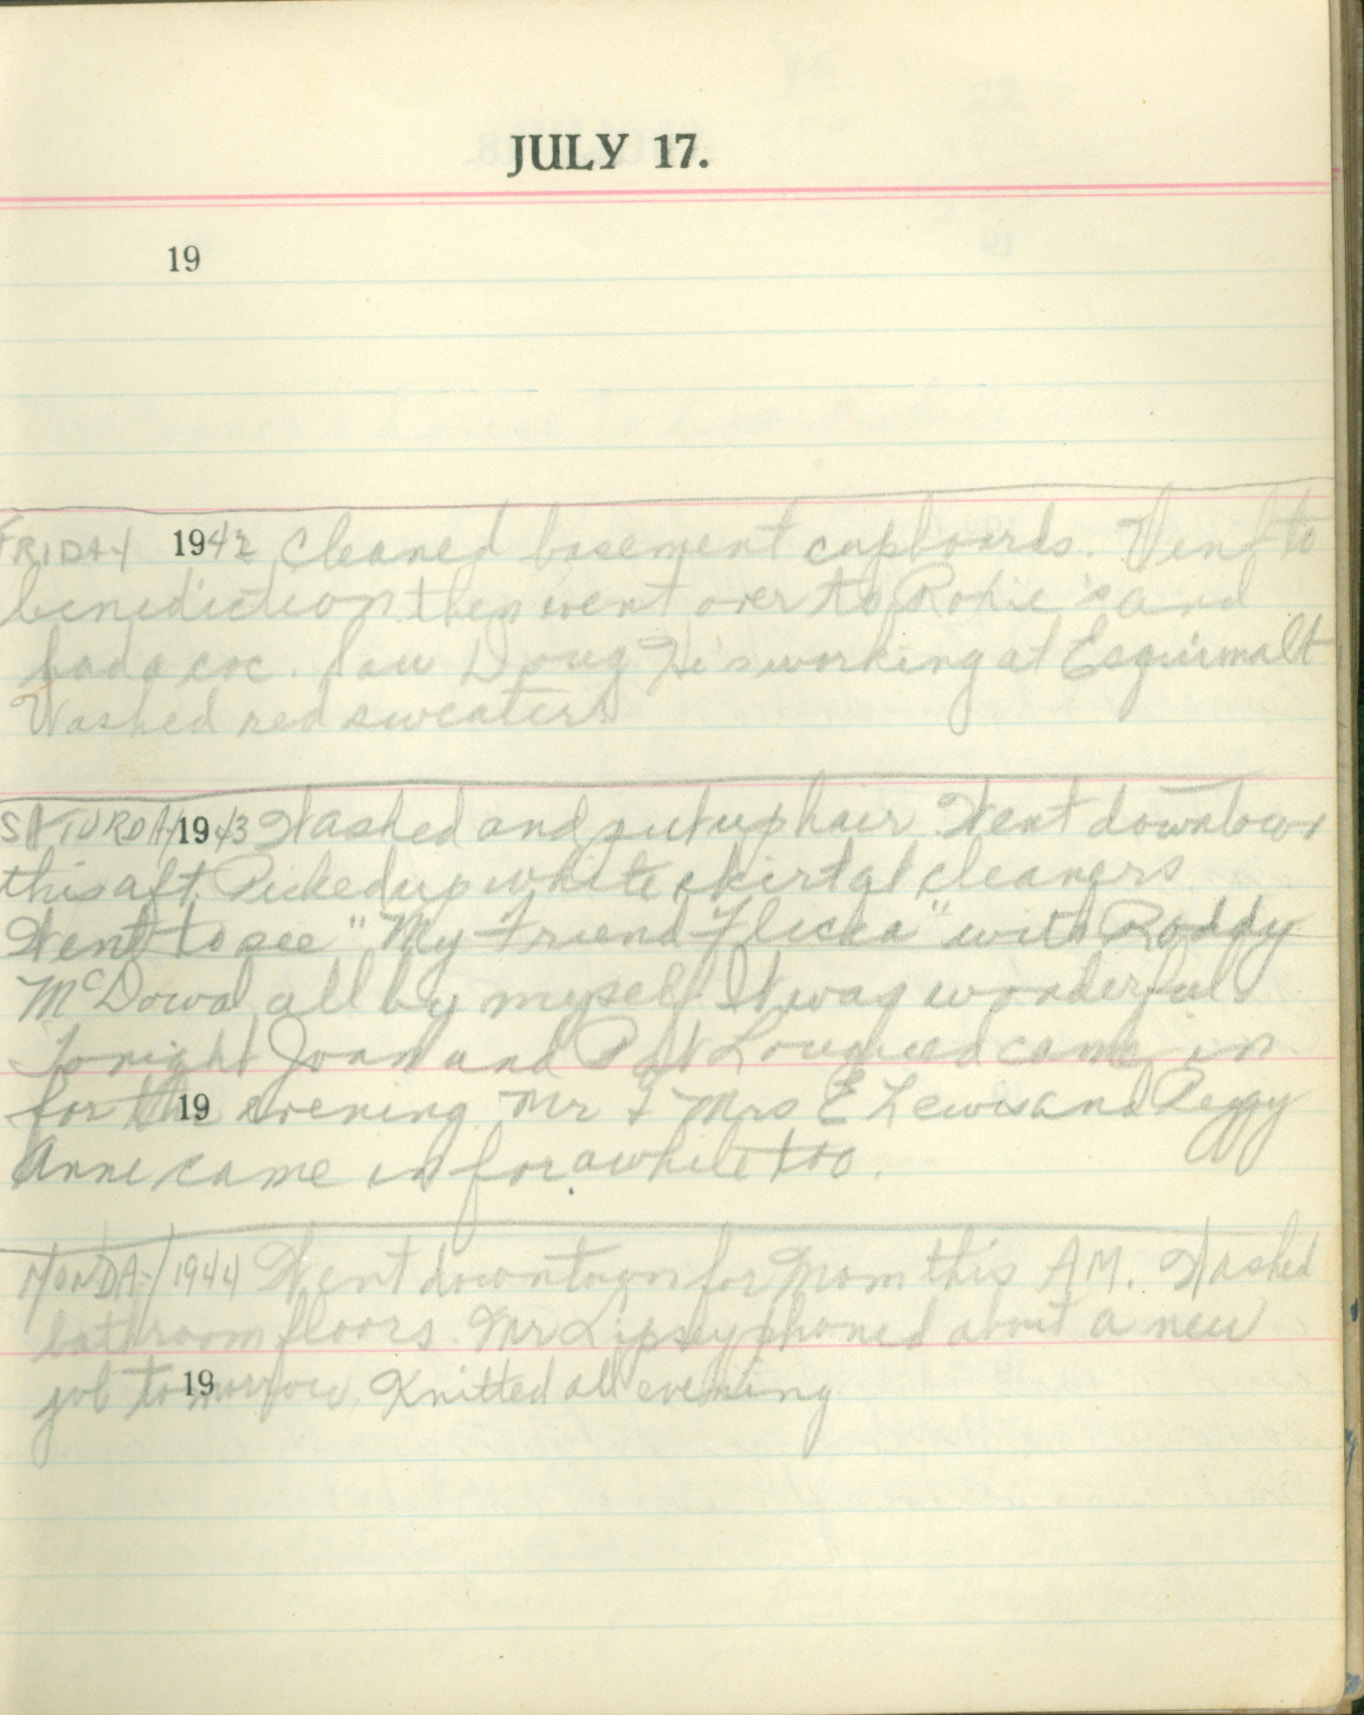 JULY 17.
19
FRIDAY 1942 Cleaned basement cupboards. Went to
benediction then went over to Roxie's and
had a coc. Saw Doug He's working at Esquimalt
Washed red sweater.
SATURDAY 1943 Washed and put up hair. Went downtown
this aft. Picked up white skirt at cleaners
Went to see "My Friend Flicka" with Roddy
McDowal all by myself. It was wonderful
Tonight Joan and Pat came in
for the 19 evening. Mr & Mrs E Lewis and Peggy
Anne came in for awhile too.
MONDAY 1944 Went downtown for Mom this AM. Washed
bathroom floors. Mr Lipsey phoned about a new
job tomorrow. 19 Knitted all evening